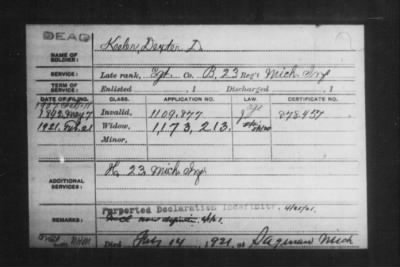 DEAD
NAME OF SOLDIER: Keeler, Dexter D.
SERVICE: Late rank, Sgt. Co. B, 23 Reg't Mich Inf
TERM OF SERVICE: Enlisted , 1 Discharged , 1
DATE OF FILING. CLASS. APPLICATION NO. LAW. CERTIFICATE NO.
1892 May 7 Invalid, 1109.877 878.457
1921. Feb. 21 Widow, 1173.213.
Minor,
ADDITIONAL SERVICES: H, 23 Mich Inf
REMARKS: Purported Declaration Indefinite.
Died Feby 14, 1921, at Mich